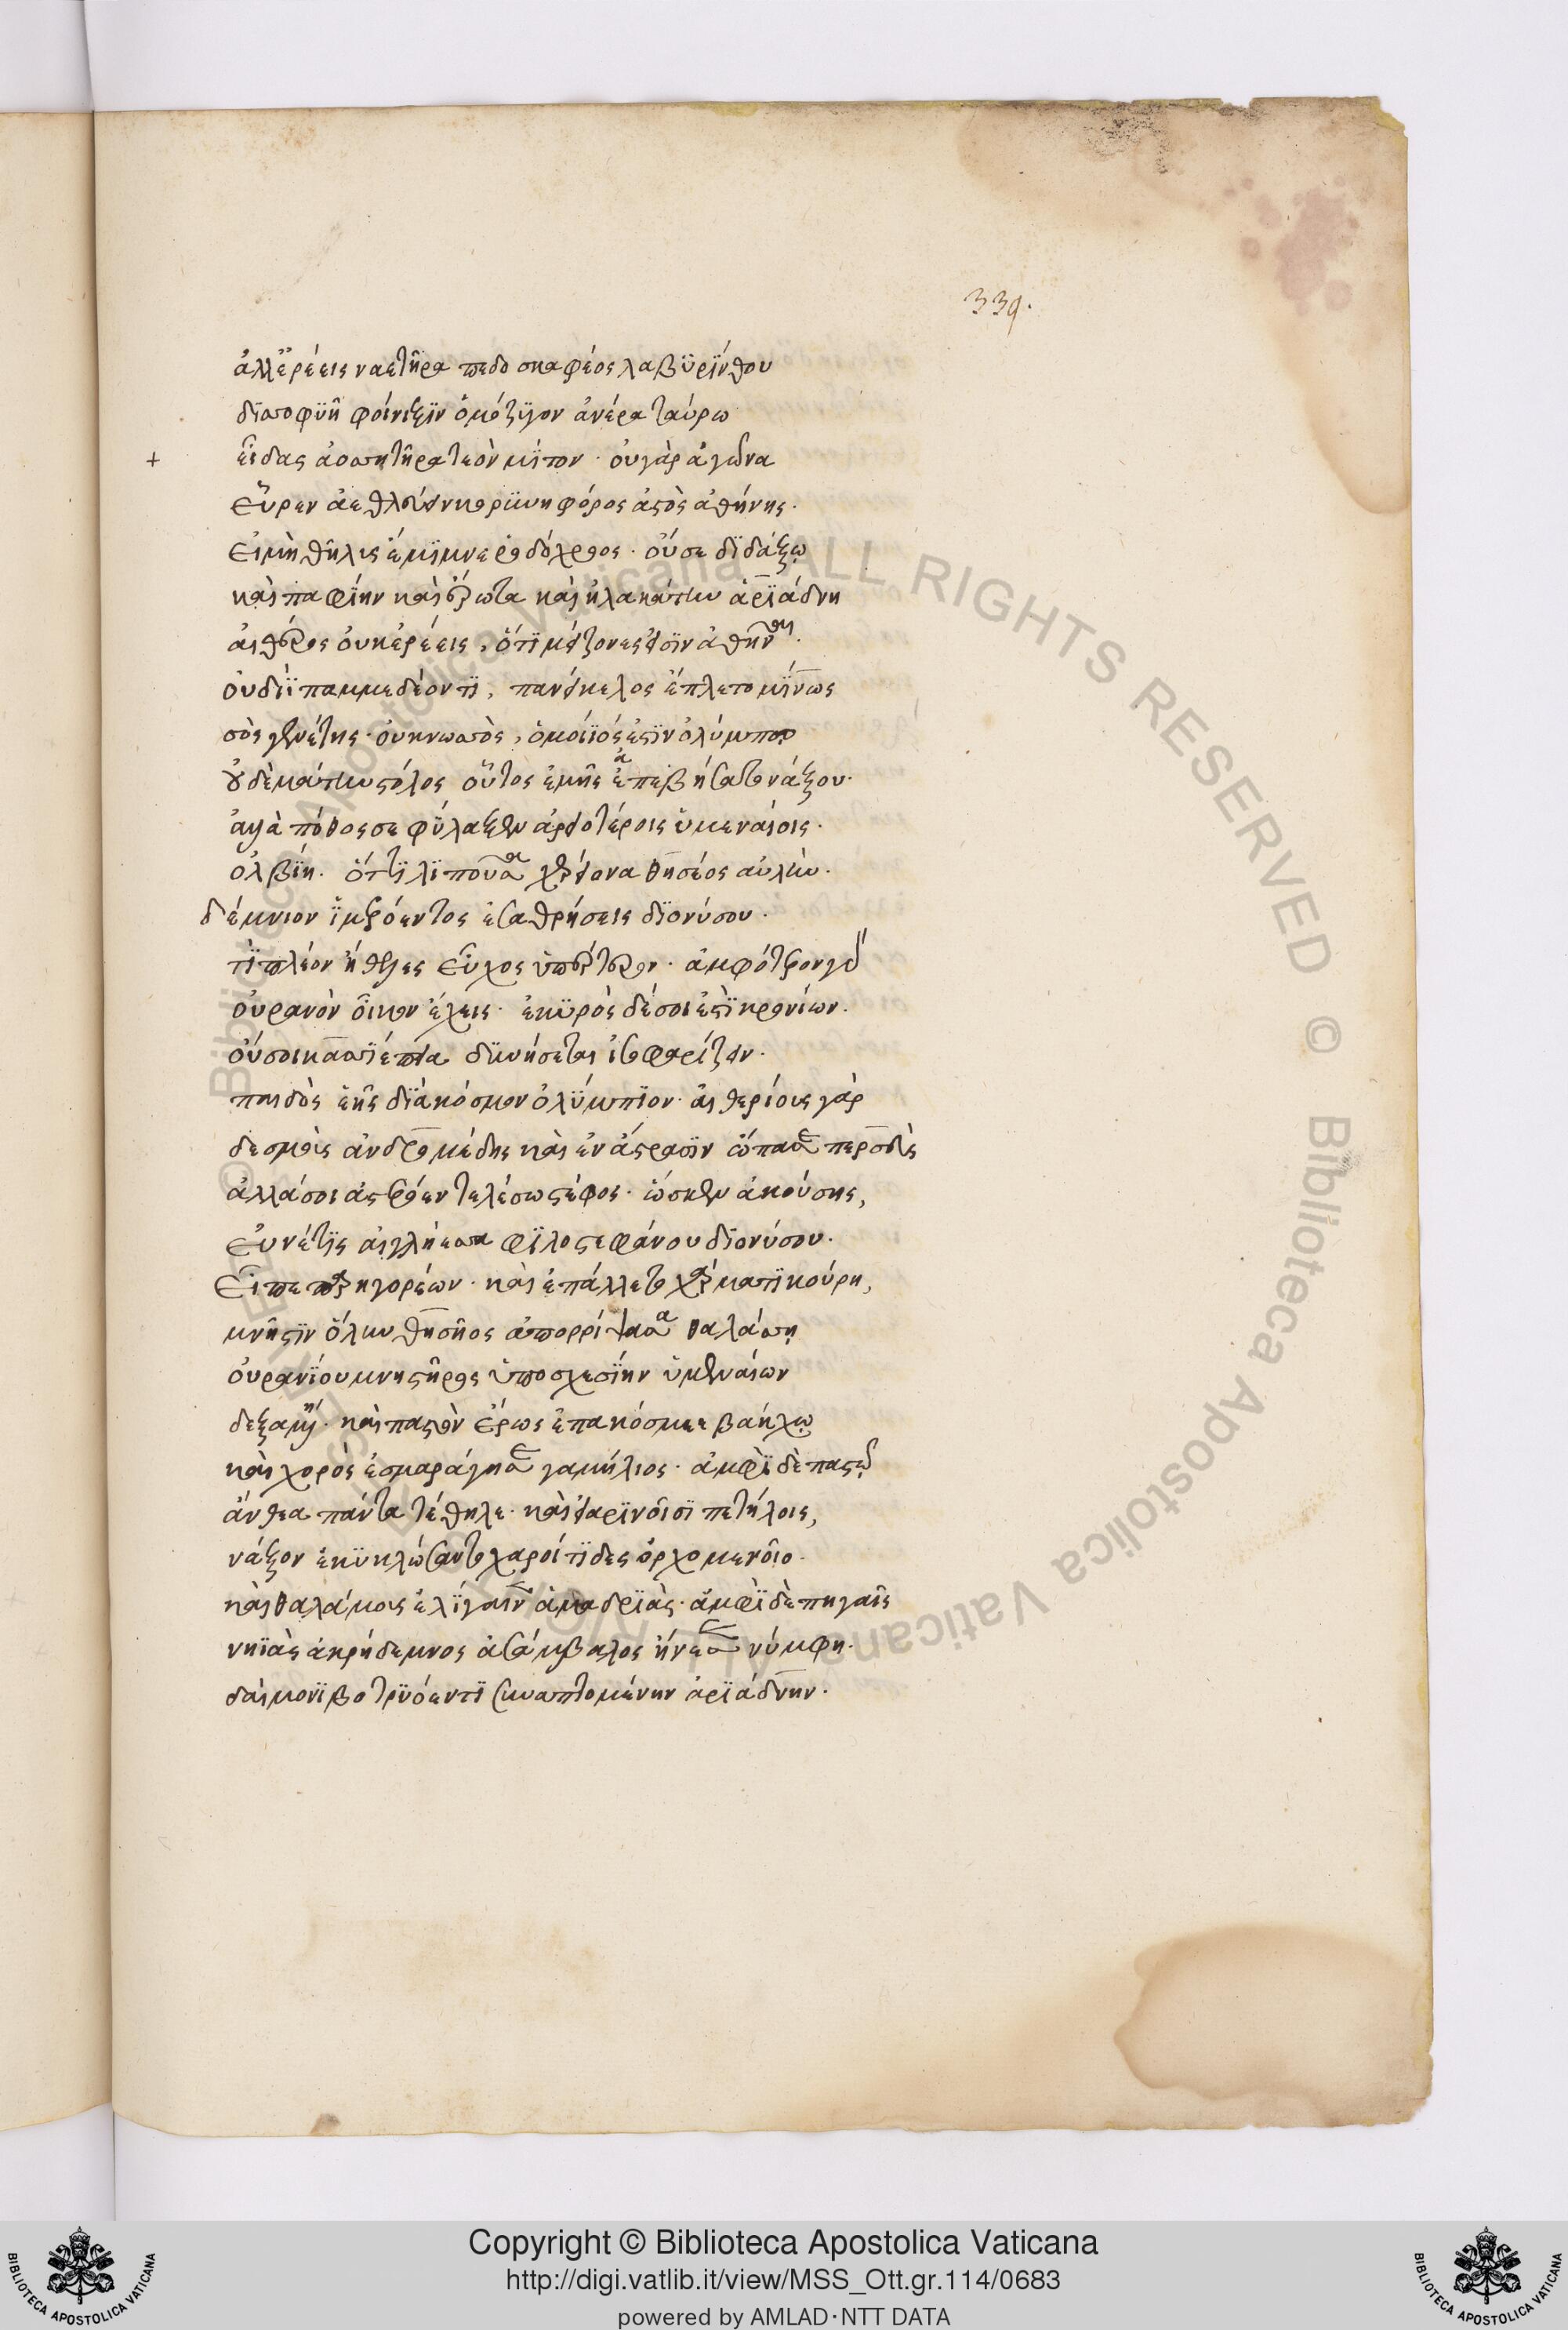 339.
ἀλλ' ἐρέεις ναετῆρα πεδοσκαφέος λαβϋρίνθου
δϊσσοφϋῆ φοίνιξϊν ὁμόζϋγον ἀνέρα ταύρω
+ εἶδας ἀοσσητῆρα τεὸν μίτον· οὐ γὰρ ἀγῶνα
εὗρεν ἀεθλεύειν κορϋνηφόρος ἀστὸς ἀθήνης·
εἰ μὴ θῆλις ἔμϊμνε ῥοδόχροος· οὔ σε δϊδάξω
καὶ παφΐην καὶ ἔρωτα καὶ ἠλακάτην ἀρϊάδνη
αἰθέρος οὐκ ἐρέεις, ὅτϊ μείζονές εἰσϊν ἀθῆναι·
οὐ δϊῒ παμμεδέοντϊ, πανείκελος ἔπλετο μίνως
σὸς γενέτης· οὐ κνωσσὸς, ὁμοίϊός ἐστϊν ὀλύμπου
οὐδὲ μάτην στόλος οὗτος ἐμῆς ἐπεβήσατο νάξου·
ἀλλὰ πόθος σε φύλαξεν ἀρειοτέροις ὑμεναίοις·
ὀλβΐη· ὅττϊ λϊποῦσα χερείονα θησέος αὐλὴν·
δέμνιον ἱμερόεντος ἐσαθρήσεις δϊονύσου·
τϊ πλέον ἤθελες εὖχος ὑπέρτερον· ἀμφότερον γὰρ
οὐρανὸν οἶκον ἔχεις· ἑκϋρὸς δέ σοι ἐστϊ κρονίων·
οὔ σοι κασσϊέπεια δϋνήσεται ἰσοφαρίζειν·
παιδὸς ἑῆς δϊὰ κόσμον ὀλύμπϊον· αἰθερίους γὰρ
δεσμοὺς ἀνδρομέδης καὶ ἐν ἄστρασϊν ὤπασε περσεὺς
ἀλλά σοι ἀστερόεν τελέσω στέφος· ὥς κεν ἀκούσης,
εὐνέτϊς αἰγλήεσσα φϊλοστεφάνου δϊονύσου·
εἶπε παρηγορέων· καὶ ἐπάλλετο χάρματϊ κούρη,
μνῆστϊν ὅλην θησῆος ἀπορρίψασα θαλάσση
οὐρανΐου μνηστῆρος ὑποσχεσΐην ὑμεναίων
δεξαμένη· καὶ παστὸν ἔρως ἐπακόσμεε βάκχω
καὶ χορὸς ἐσμαράγησε γαμήλιος· ἀμφϊ δὲ παστῶ
ἄνθεα πάντα τέθηλε· καὶ εἰαρϊνοῖσϊ πετήλοις,
νάξον ἐκϋκλώσαντο χαρίτϊδες ὀρχομενοῖο·
καὶ θαλάμοις ἐλίγαινεν ἁμαδρϊὰς· ἀμφϊ δὲ πηγαῖς
νηϊὰς ἀκρήδεμνος ἀσάμβαλος ᾔνεσε νύμφη·
δαίμονϊ βοτρϋόεντϊ συναπτομένην ἀρϊάδνην·
Copyright © Biblioteca Apostolica Vaticana
http://digi.vatlib.it/view/MSS_Ott.gr.114/0683
powered by AMLAD·NTT DATA
BIBLIOTECA APOSTOLICA VATICANA
BIBLIOTECA APOSTOLICA VATICANA
© Biblioteca Apostolica Vaticana ALL RIGHTS RESERVED © Biblioteca Apostolica Vaticana ALL RIGHTS RESERVED